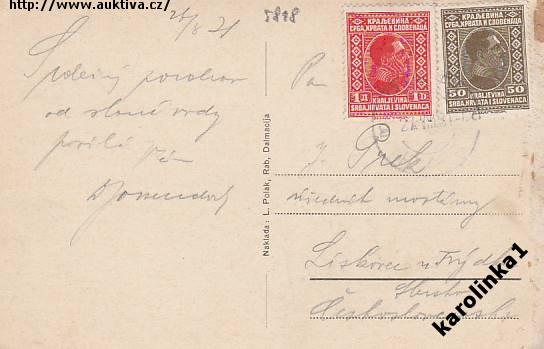 http://www.auktiva.cz/
5818
24/8 31
Srdečný pozdrav
od slané vody
posílá Vám
Pan
J. Prek
úředník
Liskovec u Frýdku
Československo
Naklada: L. Polák, Rab, Dalmacija
КРАЉЕВИНА
СРБА, ХРВАТА И СЛОВЕНАЦА
1 Д
1 D
KRALJEVINA
SRBA, HRVATA I SLOVENACA
КРАЉЕВИНА
СРБА, ХРВАТА И СЛОВЕНАЦА
50
50
KRALJEVINA
SRBA, HRVATA I SLOVENACA
karolinka1